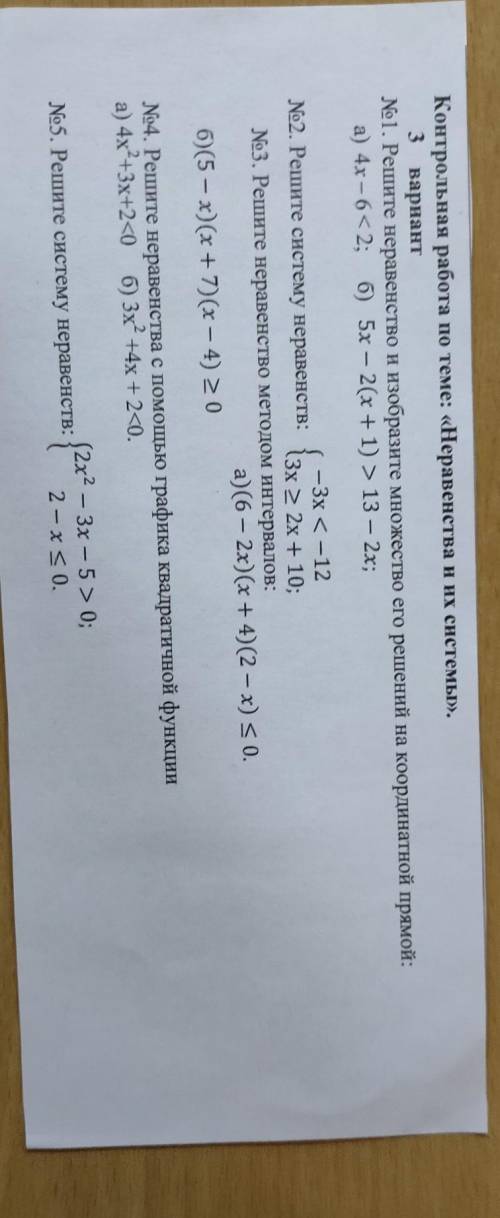 Контрольная работа по теме: «Неравенства и их системы».
3 вариант
№1. Решите неравенство и изобразите множество его решений на координатной прямой:
а) 4x – 6 < 2; б) 5x – 2(x + 1) > 13 – 2x;
№2. Решите систему неравенств: { −3x < −12
3x ≥ 2x + 10;
№3. Решите неравенство методом интервалов:
а)(6 − 2x)(x + 4)(2 − x) ≤ 0.
б)(5 − x)(x + 7)(x − 4) ≥ 0
№4. Решите неравенства с помощью графика квадратичной функции
а) 4x²+3x+2<0 б) 3x² +4x + 2<0.
№5. Решите систему неравенств: { 2x² − 3x − 5 > 0;
2 − x ≤ 0.